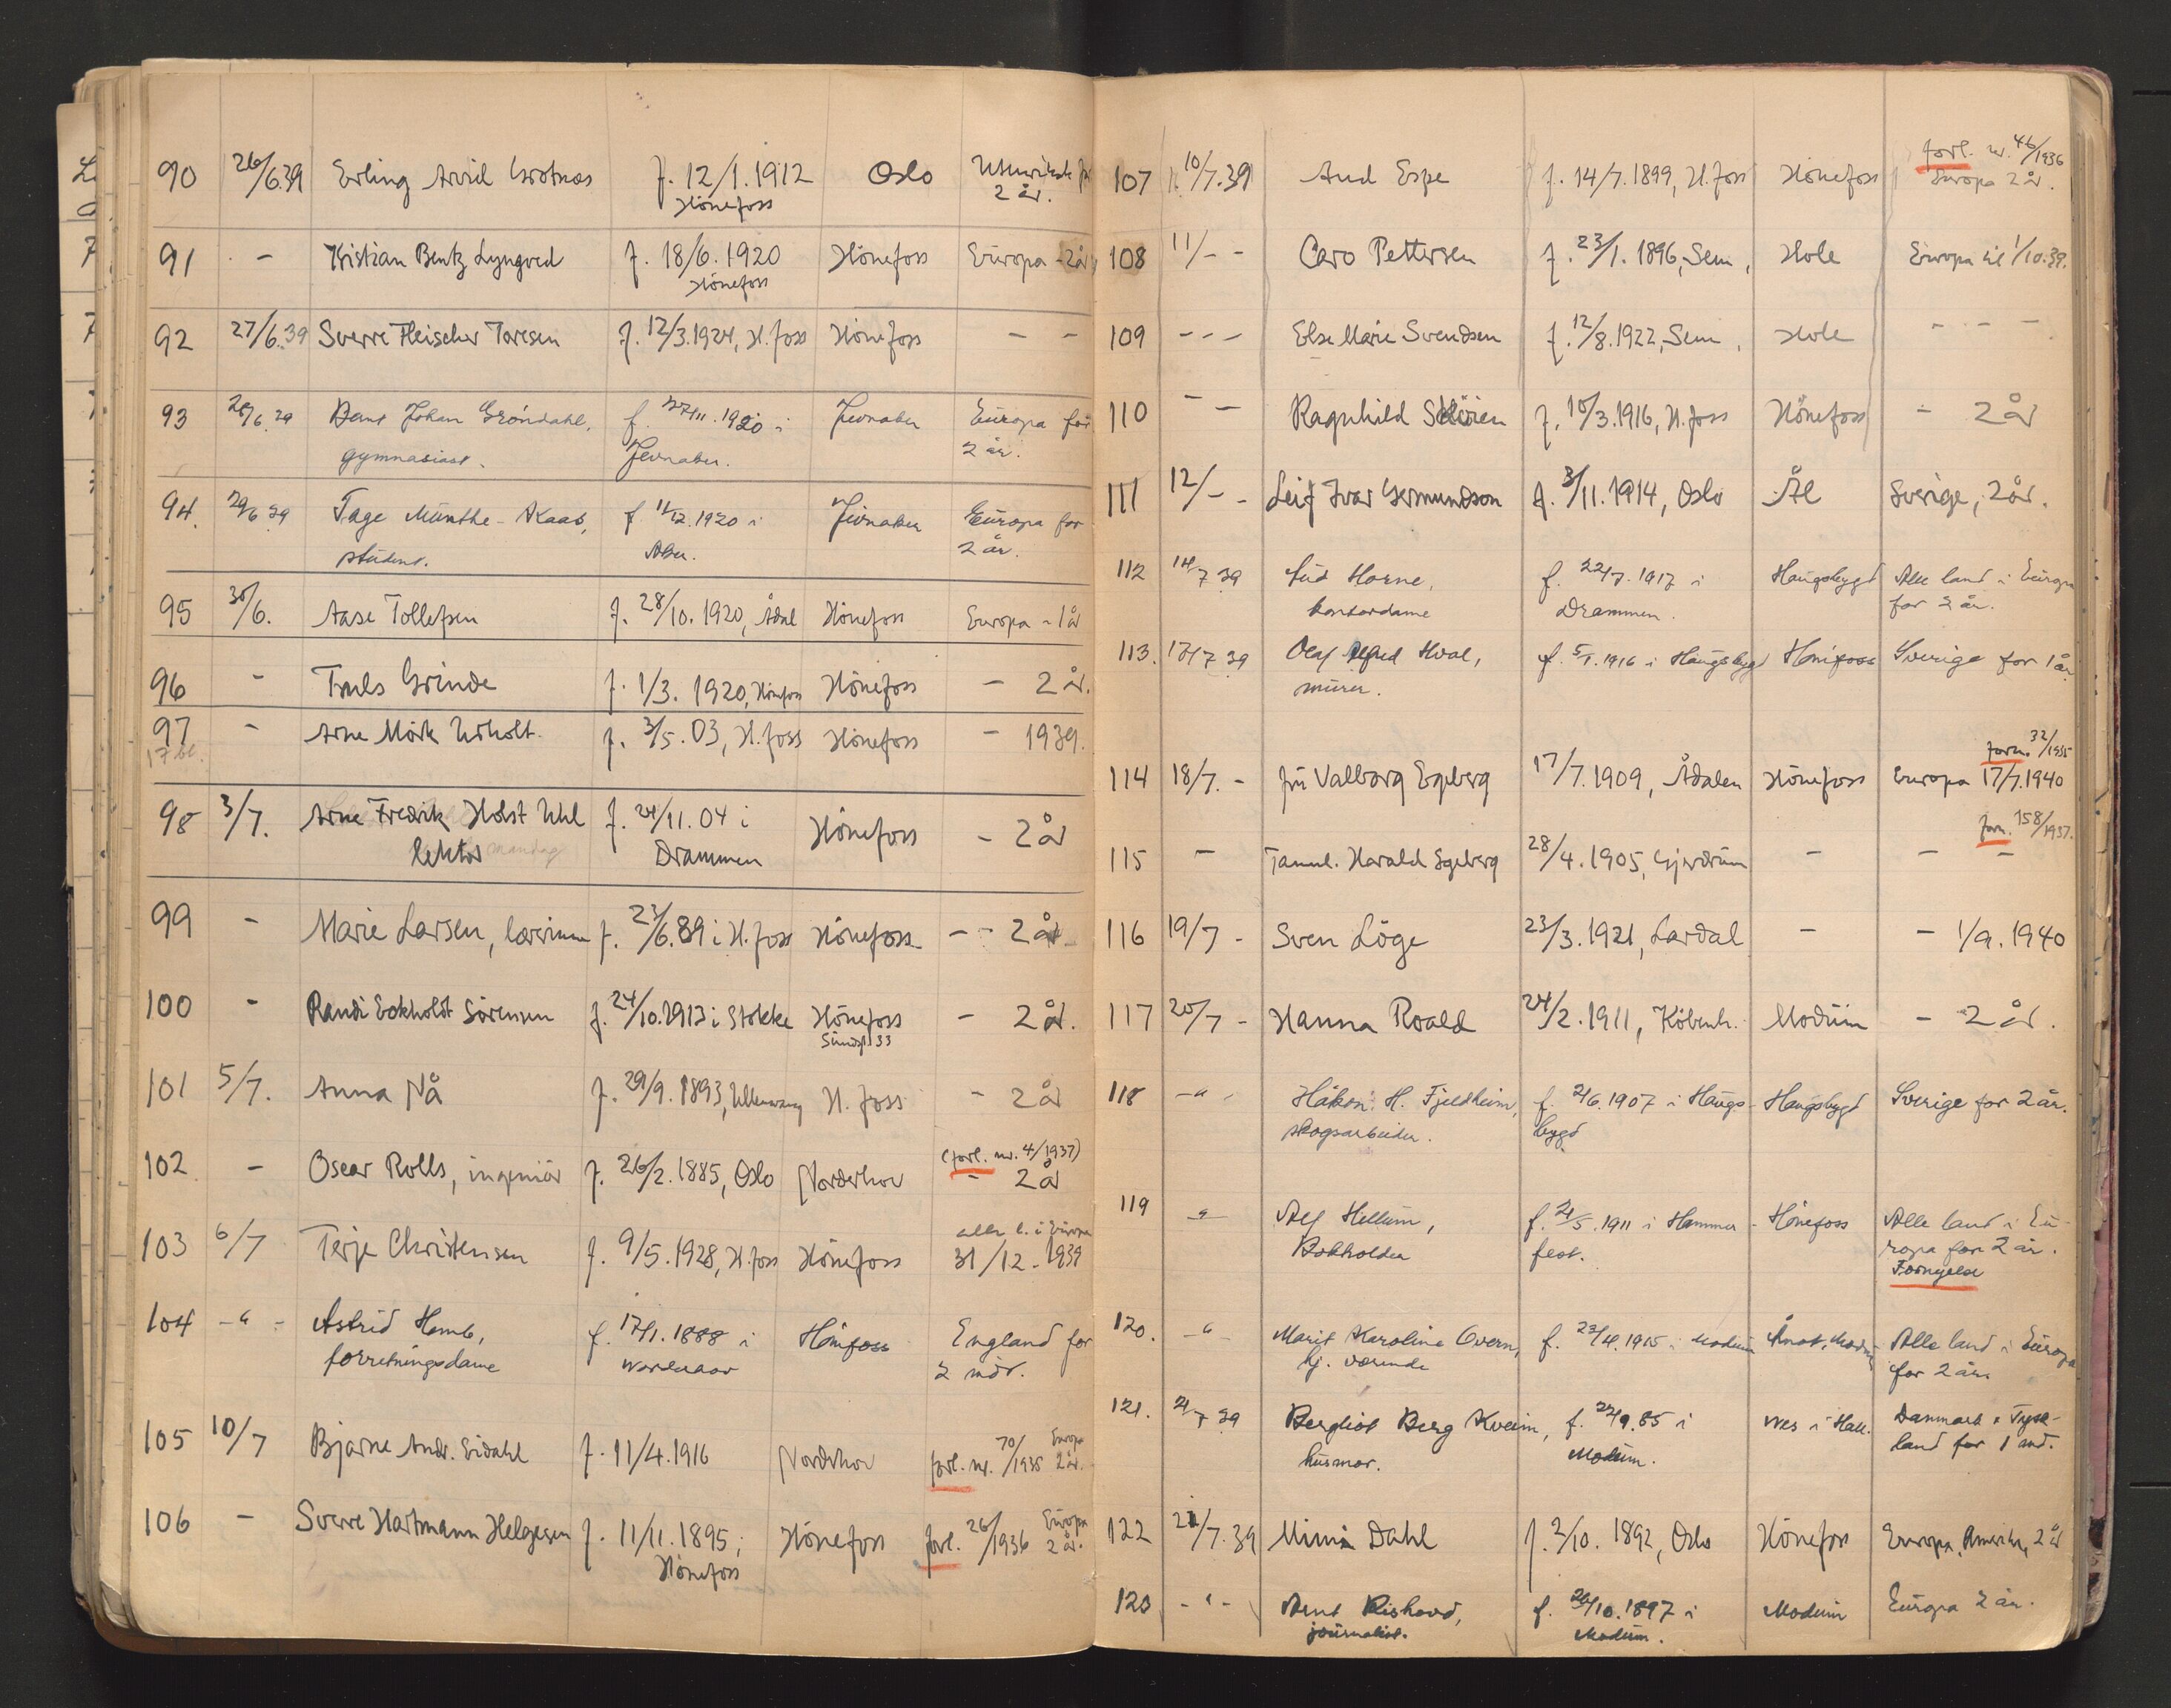 90 26/6.39 Erling Arvid Grotnæs f. 12/1.1912 Oslo
Hönefoss 2 år.
91 - Kristian Bentz Lyngved f. 18/6.1920 Hönefoss Europa - 2 år
Hönefoss
92 27/6.39 Sverre Fleischer Toresen f. 12/3.1924, H.foss Hönefoss - -
93 28/6.39 Bent Johan Gröndahl, f. 27/11.1920 i Jevnaker Europa for
gymnasiast. Jevnaker. 2 år.
94. 29/6 39 Tage Munthe-Kaas, f 11/12.1920 i Jevnaker Europa for
student. Aker. 2 år.
95 30/6. Aase Tollefsen f. 28/10.1920, Ådal Hönefoss Europa - 1 år
96 - Truls Grinde f. 1/3.1920, Hönefoss Hönefoss - 2 år.
97 - Arne Mörk f. 3/5.03, H.foss Hönefoss - 1939.
17 bl.
98 3/7. Arne Fredrik Holst Uhl f. 24/11.04 i Hönefoss - 2 år
lektor mandag Drammen
99 - Marie Larsen, lærerinne f. 23/6.89 i H.foss Hönefoss - - 2 år
100 - Randi Eckholdt Sörensen f. 24/10.1913 i Stokke Hönefoss - 2 år.
33
101 5/7. Anna Nå f. 29/9.1893, Ullensvang H.foss - 2 år
102 - Oscar Rolls, ingeniör f. 26/2.1885, Oslo Norderhov (forl. nr. 4/1937)
- 2 år
103 6/7 Terje Christensen f. 9/5.1928, H.foss Hönefoss alle l. i Europa
31/12-1939
104 -"- Astrid Hamb, f. 17/1.1888 i Hönefoss England for
forretningsdame 2 mdr.
105 10/7 Bjarne Andr. Eidahl f. 11/4.1916 Norderhov forl. nr. 70/1935 Europa 2 år.
106 - Sverre Hartmann Helgesen f. 11/11.1895, Hönefoss forl. 26/1936 Europa 2 år.
Hönefoss
107 10/7.39 Aud Espe f. 14/7.1899, H.foss Hönefoss forl. nr. 46/1936
Europa 2 år.
108 11/- - Caro Pettersen f. 23/1.1896, Sem, Hole Europa til 1/10.39.
109 - - - Else Marie Svendsen f. 12/8.1922, Sem, Hole - - -
110 - - Ragnhild Sköien f. 10/3.1916, H.foss Hönefoss - 2 år
111 12/- - Leif Ivar Germundson f. 3/11.1914, Oslo Ål Sverige, 2 år.
112 14/7 39 Aud Horne, f. 22/7.1917 i Haugsbygd Alle land i Europa
kontordame Drammen. for 2 år.
113. 17/7 39 Olaf Alfred Hval, f. 5/1.1916 i Haugsbygd Hönefoss Sverige for 1 år
murer.
114 18/7.- fru Valborg Egeberg 17/7.1909, Ådalen Hönefoss forn. 32/1935
Europa 17/7.1940
115 - Tannl. Harald Egeberg 28/4.1905, Gjerdrum - forn. 158/1937.
- -
116 19/7 - Sven Löge 23/3.1921, Lardal - - 1/9.1940
117 20/7 - Hanna Roald 24/2.1911, Köbenh. Modum - 2 år.
118 -"- Håkon H. Fjeldheim, f. 2/6.1907 i Haugs- Haugsbygd Sverige for 2 år.
skogsarbeider. bygd
119 -"- Alf Hellum, f. 21/5.1911 i Hammer- Hönefoss Alle land i Eu-
Bokholder fest. ropa for 2 år.
Fornyelse
120. -"- Marit Karoline Overn, f. 23/4.1915 i Modum Åmot, Modum Alle land i Europa
hj. værende for 2 år.
121. 21/7 39 Bergliot Berg Kveim, f. 22/9.85 i Nes i Hall. Danmark & Tysk-
husmor. Modum. land for 1 md.
122 21/7.39 Mimi Dahl f. 2/10.1892, Oslo Hönefoss Europa, Amerika, 2 år
123 -"- Arnt Rishovd, f. 26/10.1897 i Modum Europa 2 år.
journalist. Modum.